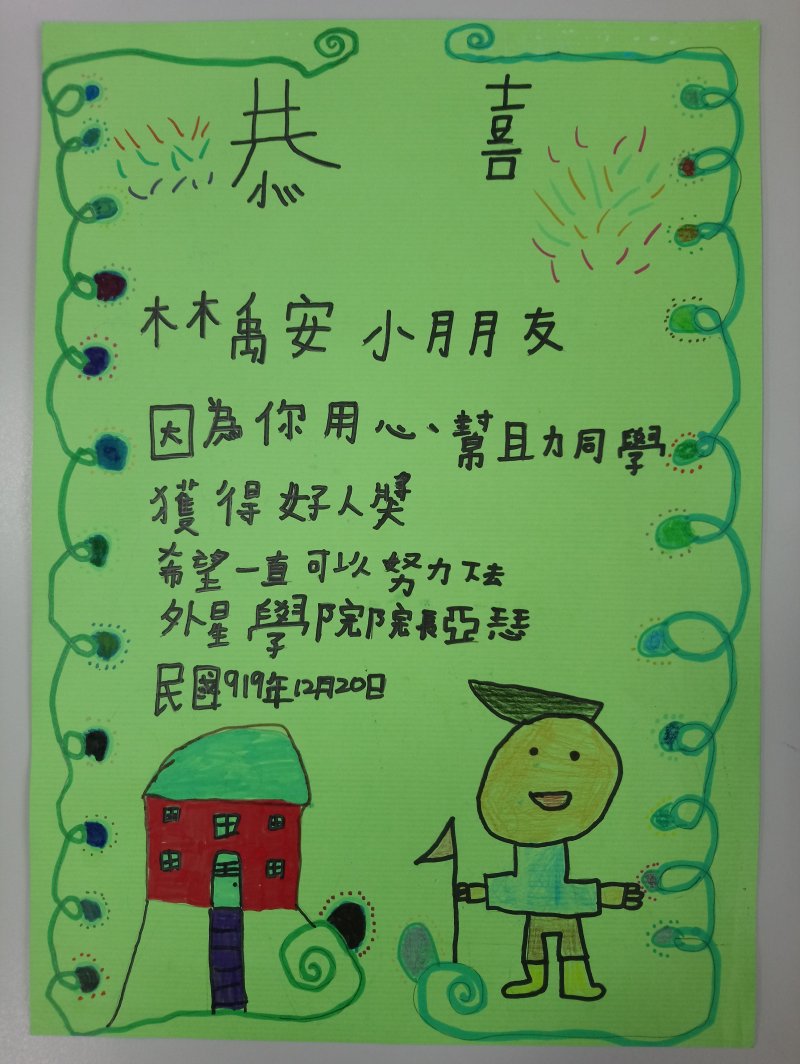 恭 喜
林禹安 小朋友
因為你用心、幫助同學
獲得好人獎
希望一直可以努力下去
外星學院院長亞瑟
民國919年12月20日